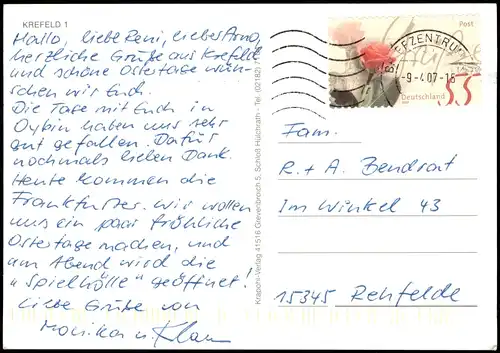 KREFELD 1
Hallo, liebe Reni, lieber Arno,
herzliche Grüße aus Krefeld
und schöne Ostertage wün-
schen wir Euch.
Die Tage mit Euch in
Oybin haben uns sehr
gut gefallen. Dafür
nochmals lieben Dank.
Heute kommen die
Frankfurter. Wir wollen
uns ein paar fröhliche
Ostertage machen, und
am Abend wird die
"Spielhölle" geöffnet!
Liebe Grüße von
Monika u. Klaus
Krapohl-Verlag 41516 Grevenbroich 5, Schloß Hülchrath - Tel. (02182)
Post
BRIEFZENTRUM
-9-4.07-18
Deutschland
55
Fam.
R. + A. Bendrat
Im Winkel 43
15345 Rehfelde